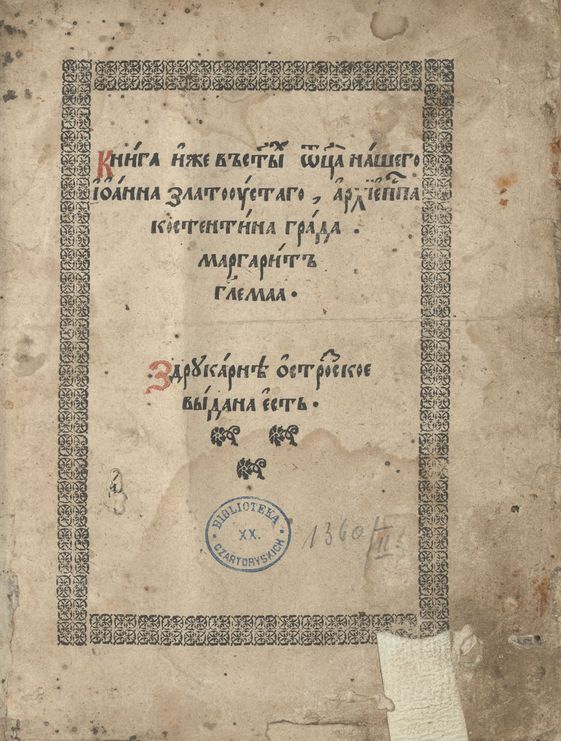 Кни́га и҆́же въ ст҃ы́х ѿц҃а на́шего
іѡ҆а́нна златоꙋ́стаго, а҆рхїеп҃па
костентѝна гра́да.
маргарі́тъ
гл҃емаа.
Здрꙋка́рнѣ ѻ҆стро́зское
вы́дана е҆стъ.
BIBLIOTEKA
XX.
CZARTORYSKICH
1360/II